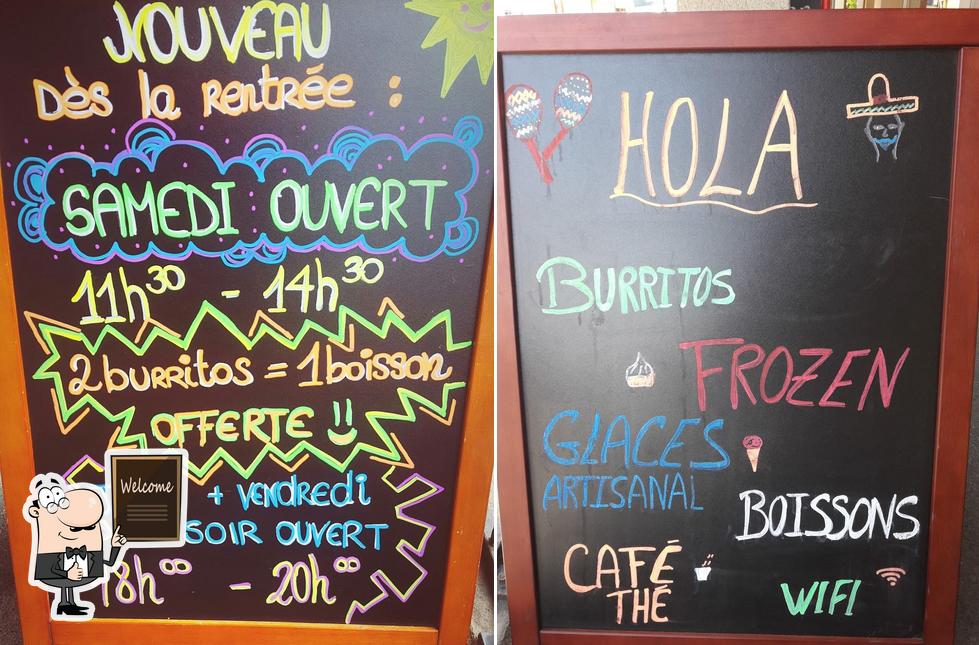 NOUVEAU
Dès la rentrée :
SAMEDI OUVERT
11h30 - 14h30
2 burritos = 1 boisson
OFFERTE !!
+ vendredi
SOIR OUVERT
18h00 - 20h00
Welcome
HOLA
BURRITOS
FROZEN
GLACES
ARTISANAL
BOISSONS
CAFÉ
THÉ
WIFI